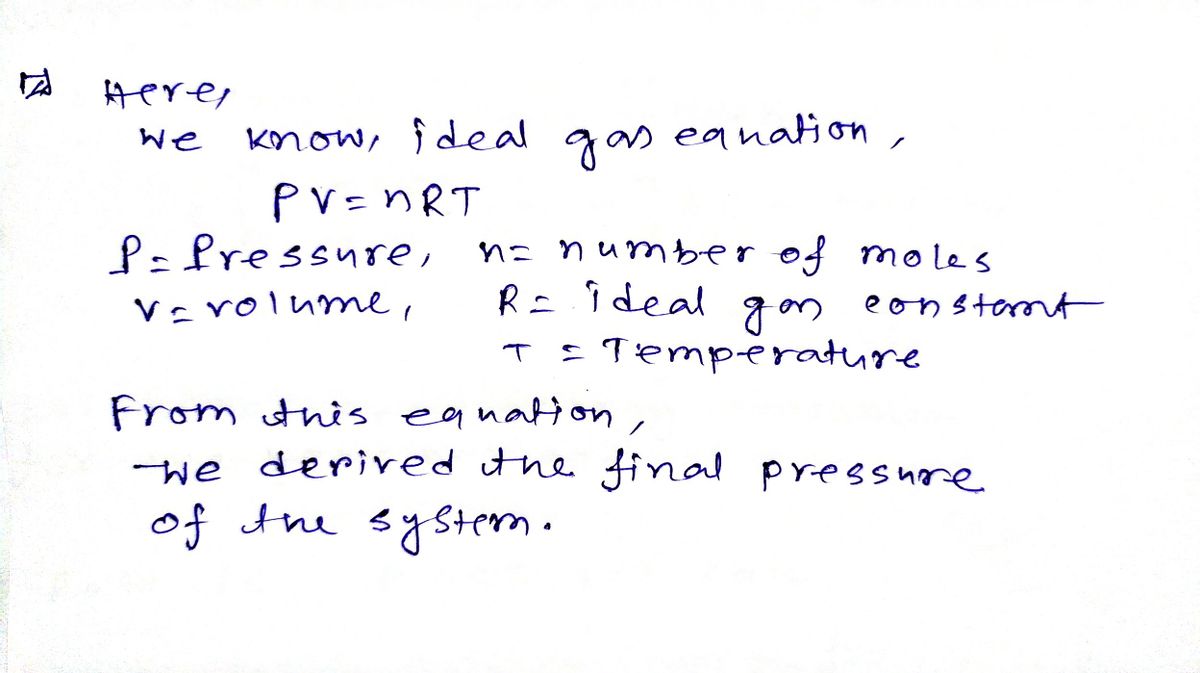 Here,
we know, ideal gas equation,
PV = nRT
P = Pressure, n = number of moles
V = volume, R = ideal gas constant
T = Temperature
From this equation,
we derived the final pressure
of the system.